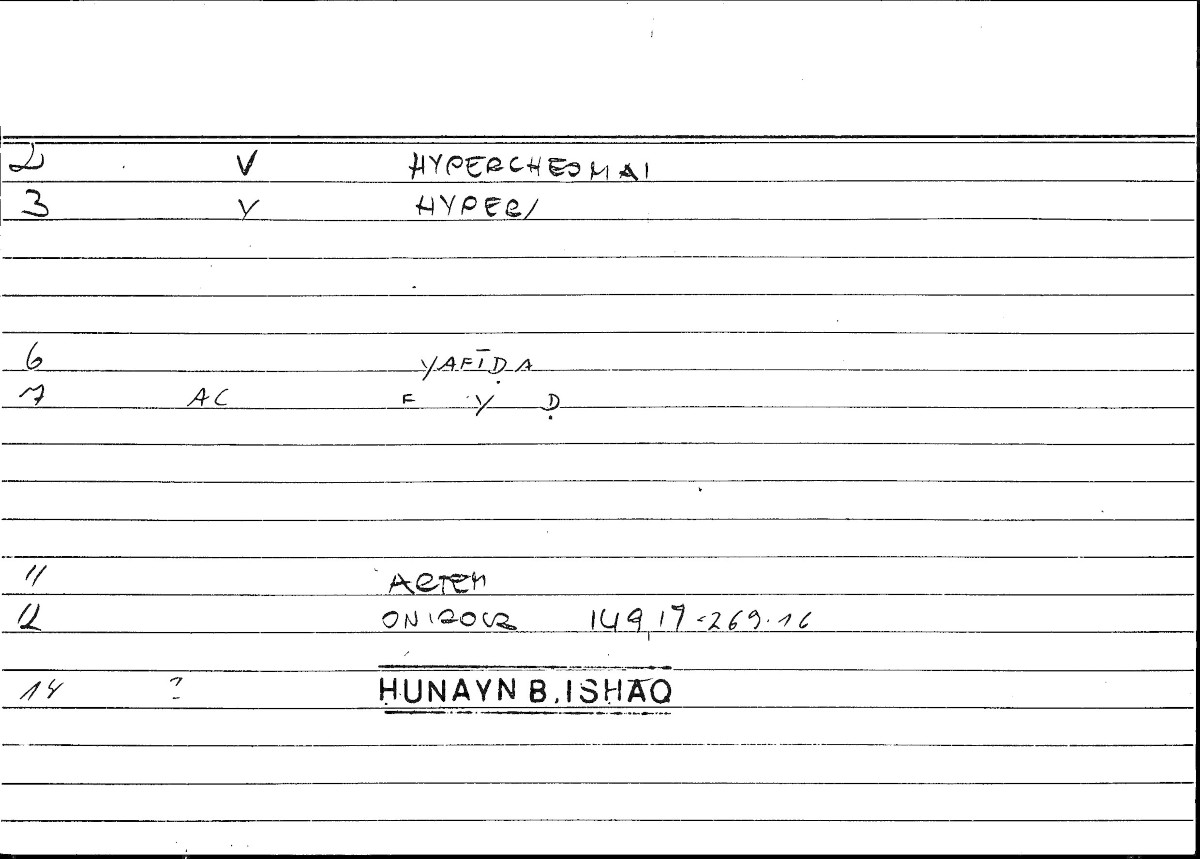 2 V HYPERCHEOMAI
3 V HYPER/
6 YAFĪḌA
7 AC F Y Ḍ
11 ARTEM
12 ONIROCR 149,17=269.16
14 ? ḤUNAYN B.ISḤĀQ